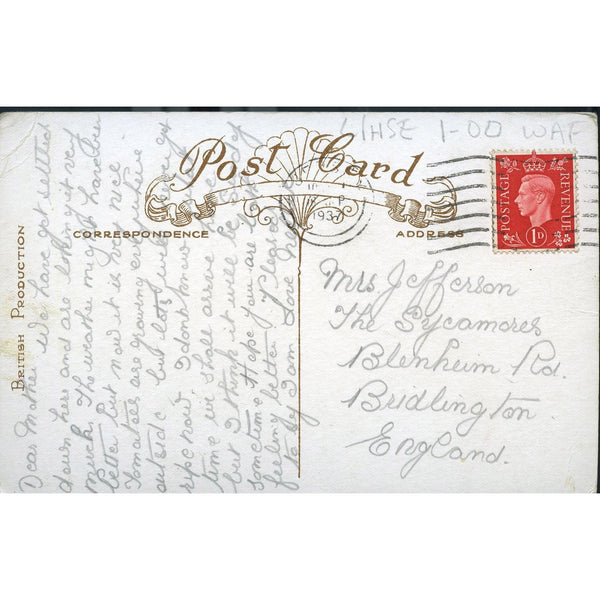 11HSE 1-00 WAF
Post Card
CORRESPONDENCE
ADDRESS
BRITISH PRODUCTION
1937
POSTAGE
REVENUE
1D
Mrs Jefferson
The Sycamores
Blenheim Rd.
Bridlington
England.
Dear Mother We have got settled
down here and are liking it very
much. The weather might have been
better but now it is very nice
Tomatoes are growing everywhere
outside but lots will be
ripe now. I don't know what
time we shall arrive
but I think it will be
sometime. Hope you are
feeling better. Please
Love